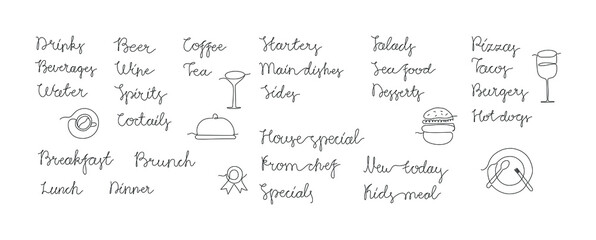 Drinks
Beverages
Water
Beer
Wine
Spirits
Coctails
Coffee
Tea
Starters
Main dishes
Sides
Salads
Seafood
Desserts
Pizzas
Tacos
Burgers
Hot dogs
Breakfast
Brunch
Lunch
Dinner
House special
From chef
Specials
New today
Kids meal